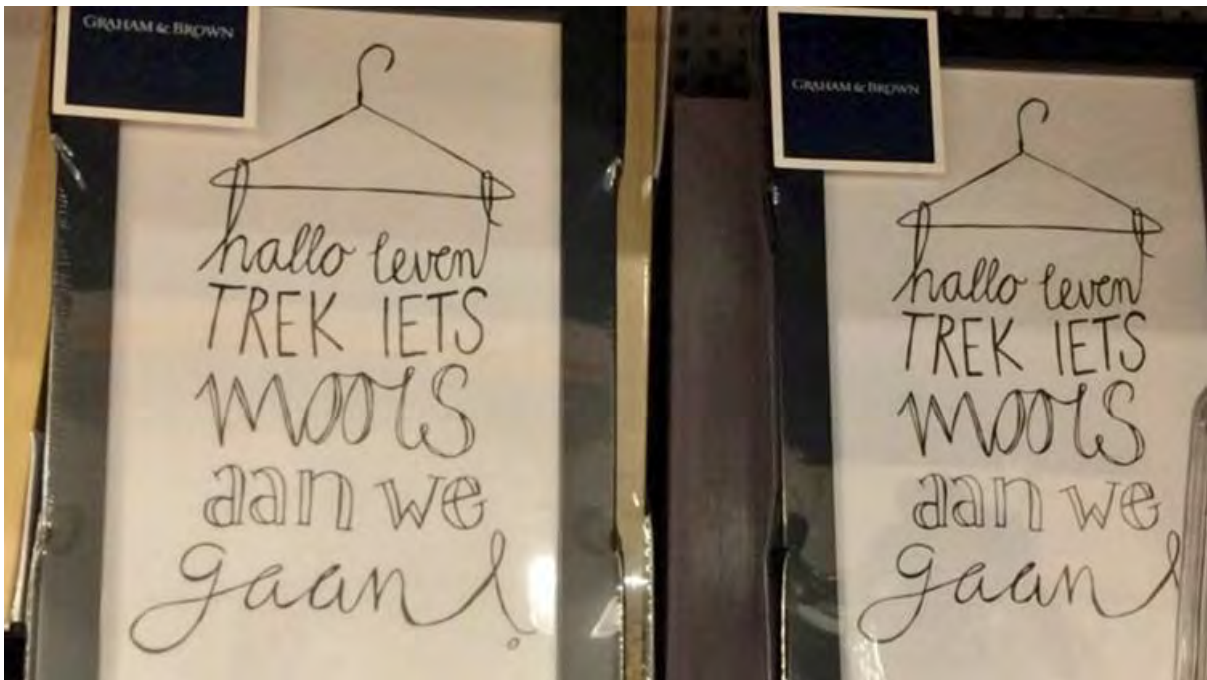 GRAHAM & BROWN
hallo leven
TREK IETS
moois
aan we
gaan!
GRAHAM & BROWN
hallo leven
TREK IETS
moois
aan we
gaan!